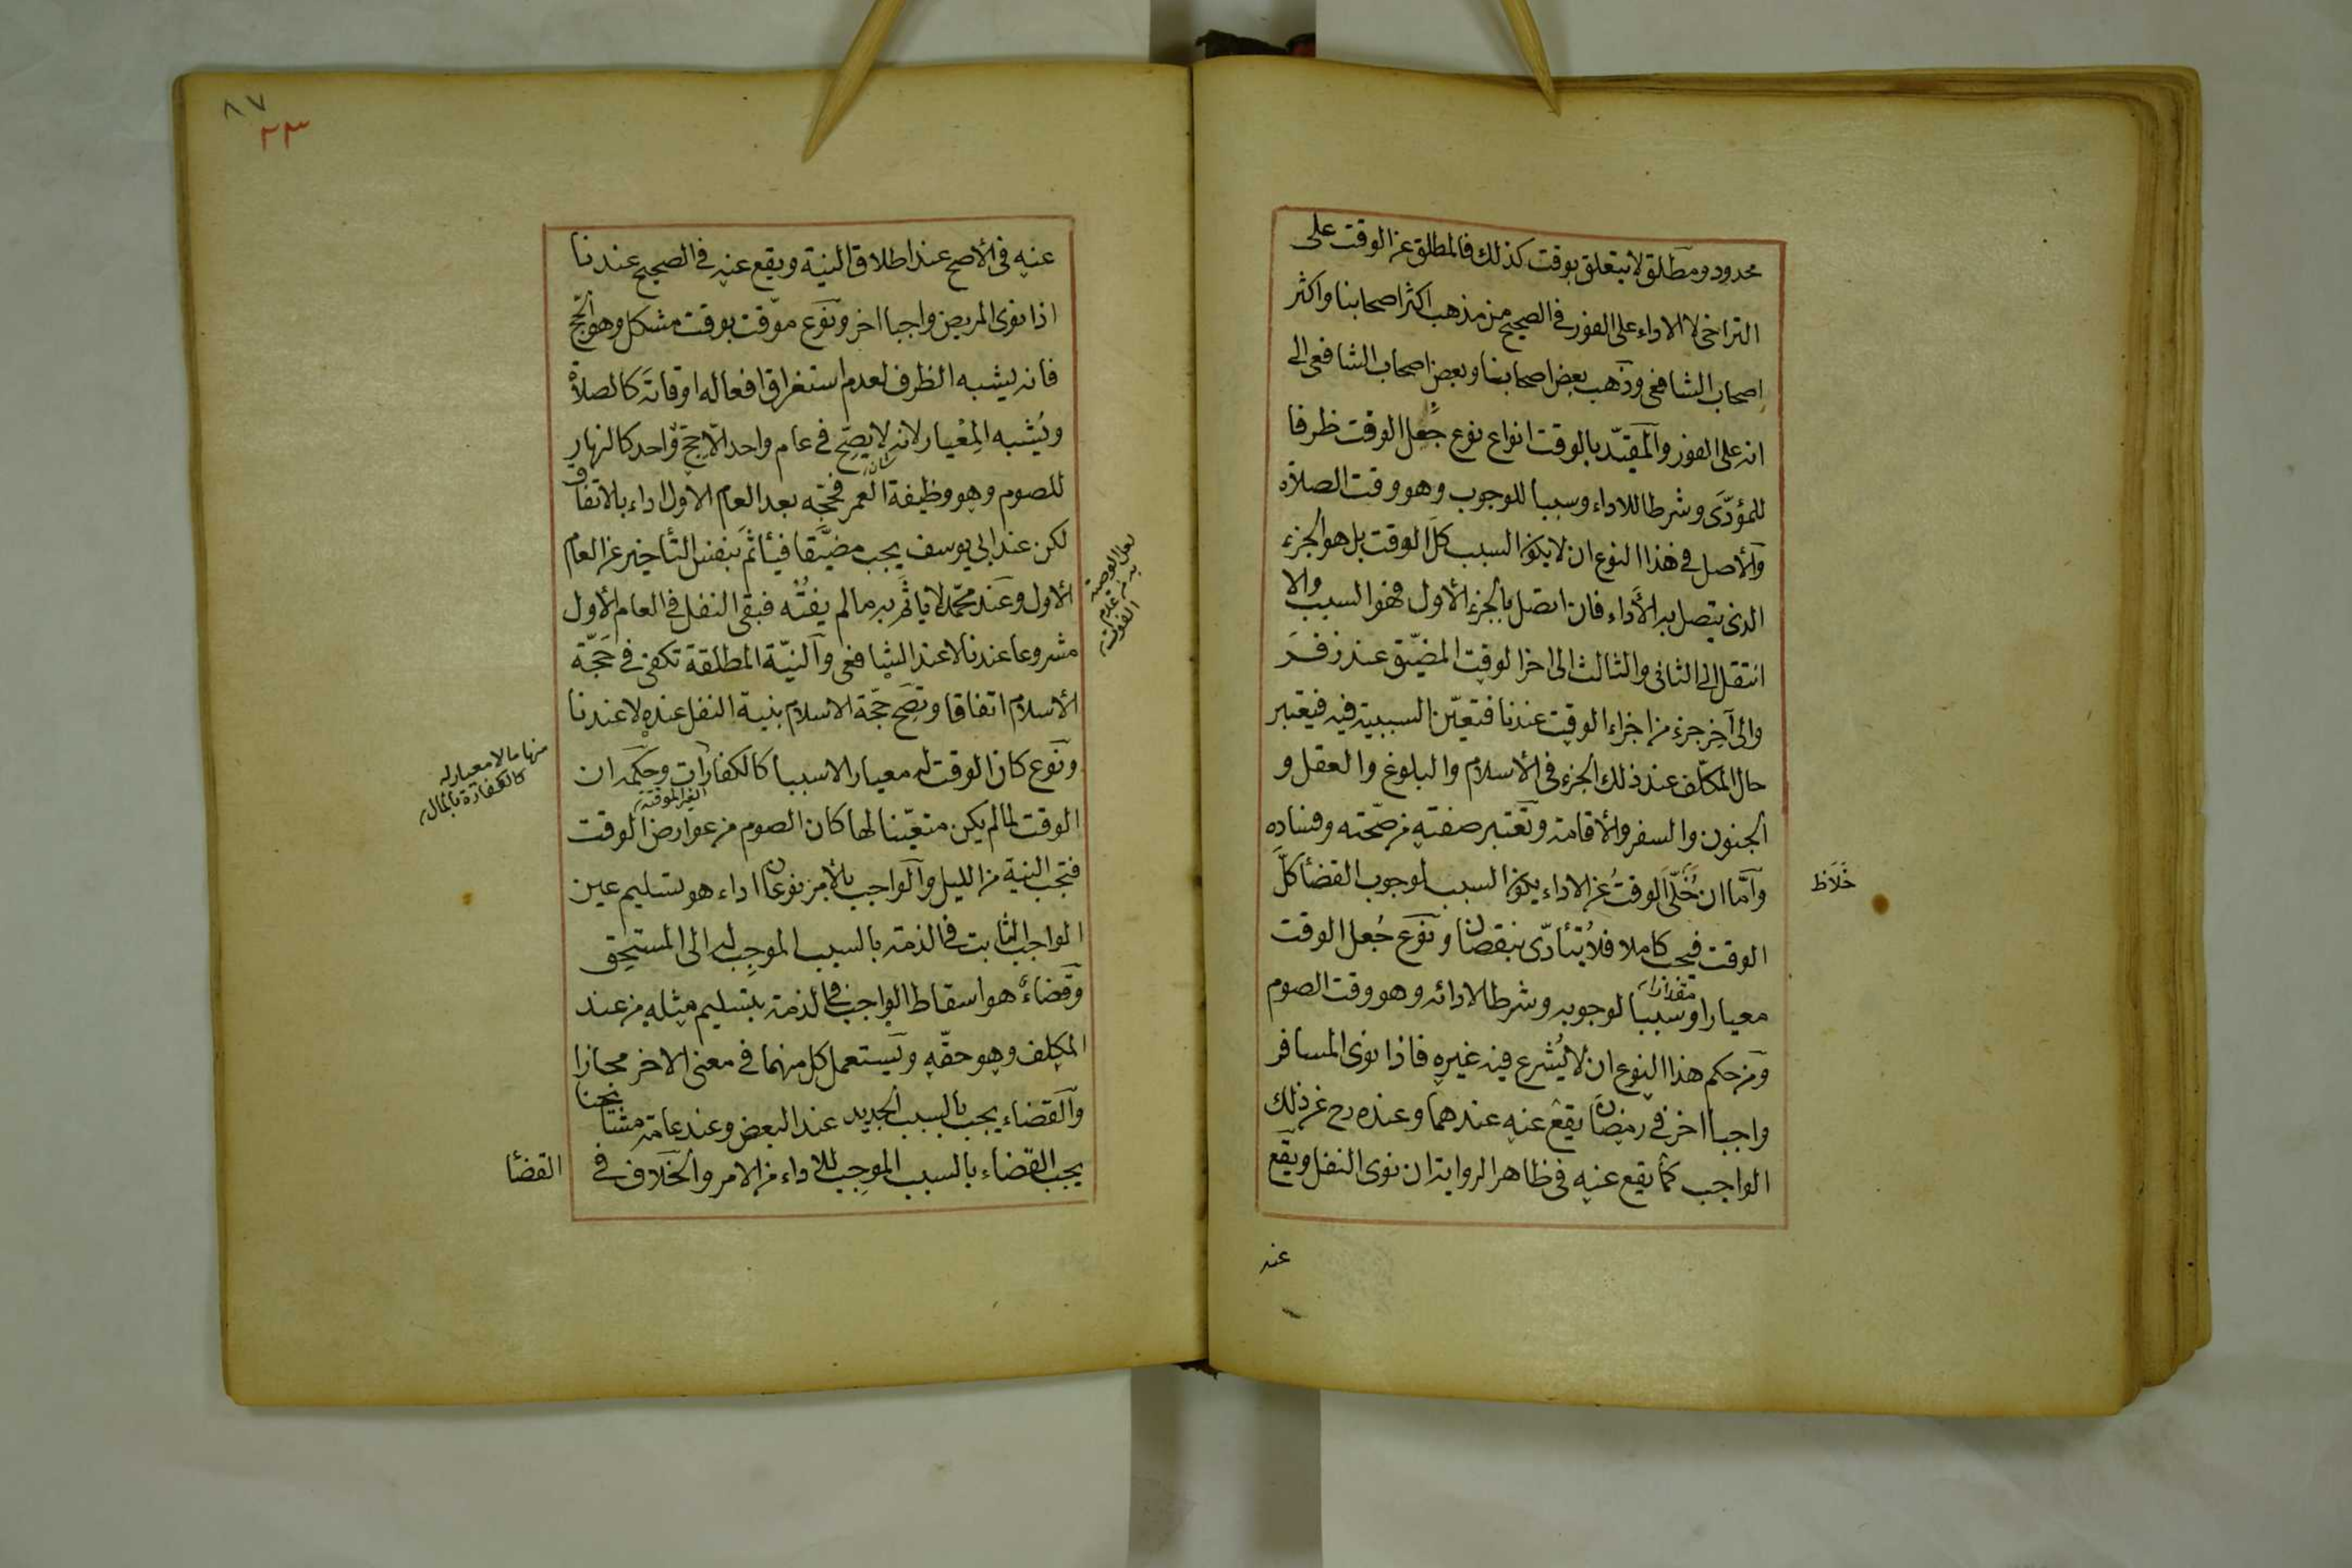 محدود ومطلق لا يتعلق بوقت كذلك فالمطلق عن الوقت على
التراخى لا الاداء على الفور فى الصحيح من مذهب اكثر اصحابنا واكثر
اصحاب الشافعى وذهب بعض اصحابنا وبعض اصحاب الشافعى الى
انه على الفور والمقيّد بالوقت انواع نوع جُعل الوقت ظرفا
للمؤدّى وشرطا للاداء وسببا للوجوب وهو وقت الصلاة
والأصل فى هذا النوع ان لا يكون السبب كل الوقت بل هو الجزء
الذى يتصل به الأداء فان اتصل بالجزء الأول فهو السبب والا
انتقل الى الثانى والثالث الى اخر الوقت المضيّق عند زفر
والى آخر جزء من اجزاء الوقت عندنا فتعيّن السببية فيه فيعتبر
حال المكلّف عند ذلك الجزء فى الأسلام والبلوغ والعقل و
الجنون والسفر والأقامة وتعتبر صفته من صحّته وفساده
وامّا ان خُلّى الوقتُ عن الاداء يكون السبب لوجوب القضأ كلّ
خلاظ
الوقت فيجب كاملا فلا يُتأدّى بنقصان ونوع جُعل الوقت
مقدارا
معيارا وسببا لوجوبه وشرطا لادائه وهو وقت الصوم
ومن حكم هذا النوع ان لا يُشرع فيه غيره فاذا نوى المسافر
واجبا اخر فى رمضان يقع عنه عندهما وعنده رح عن ذلك
الواجب كما يقع عنه فى ظاهر الرواية ان نوى النفل ويقع
عنه
٨٧
٢٣
عنه فى الأصح عند اطلاق النية ويقع عنه فى الصحيح عندنا
اذا نوى المريض واجبا اخر ونوع موّقت بوقت مشكل وهو الحجّ
فانه يشبه الظرف لعدم استغراق افعاله اوقاته كالصلاة
ويُشبه المِعْيار لانه لا يصحّ فى عام واحد الّا حجّ واحد كالنهار
للصوم وهو وظيفة العمر فحجّه بعد العام الاول اداء بالاتفاق
لكن عند ابى يوسف يجب مضيّقا فيأثم بنفس التأخير عن العام
الأول وعند محمّد لا ياثم به مالم يفُتْه فبقى النفل فى العام الأول
مشروعا عندنا لا عند الشافعى والنيّة المطلقة تكفى فى حَجّة
الأسلام اتفاقا وتصح حجّة الاسلام بنية النفل عنده لا عندنا
ونوع كان الوقت له معيارا لا سببا كالكفارات وحكمه ان
منها ما لا معيار له
كالكفارة بالمال
الغير الموقتة
الوقت لما لم يكن متعيّنا لها كان الصوم من عوارض الوقت
فتجب النية من الليل والواجب بالأمر نوعان اداء هو تسليم عين
الواجب الثابت فى الذمة بالسبب الموجِب له الى المستحِق
وقضاءٌ هو اسقاط الواجب فى الذمة بتسليم مثله من عند
المكلف وهو حقّه ويستعمل كل منهما فى معنى الاخر مجازا
والقضاء يجب بالسبب الجديد عند البعض وعند عامة مشايخنا
يجب القضاء بالسبب الموجب للاداء من الامر والخلاف فى
القضأ